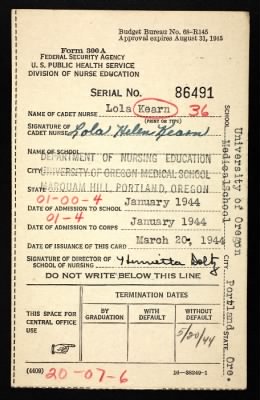 Budget Bureau No. 68-R145
Approval expires August 31, 1945
Form 300 A
FEDERAL SECURITY AGENCY
U. S. PUBLIC HEALTH SERVICE
DIVISION OF NURSE EDUCATION
SERIAL NO. 86491
NAME OF CADET NURSE Lola Kearn 36
(PRINT OR TYPE)
SIGNATURE OF CADET NURSE Lola Helen Kearn
NAME OF SCHOOL
DEPARTMENT OF NURSING EDUCATION
CITY UNIVERSITY OF OREGON MEDICAL SCHOOL
STATE MARQUAM HILL, PORTLAND, OREGON
01-00-4 January 1944
DATE OF ADMISSION TO SCHOOL
01-4 January 1944
DATE OF ADMISSION TO CORPS
DATE OF ISSUANCE OF THIS CARD March 20, 1944
SIGNATURE OF DIRECTOR SCHOOL OF NURSING Henrietta Doltz
DO NOT WRITE BELOW THIS LINE
THIS SPACE FOR CENTRAL OFFICE USE
TERMINATION DATES
BY GRADUATION
WITH DEFAULT
WITHOUT DEFAULT
5/20/44
(4409) 20-07-6 16-38249-1
University of Oregon
SCHOOL Medical School CITY Portland STATE Ore.